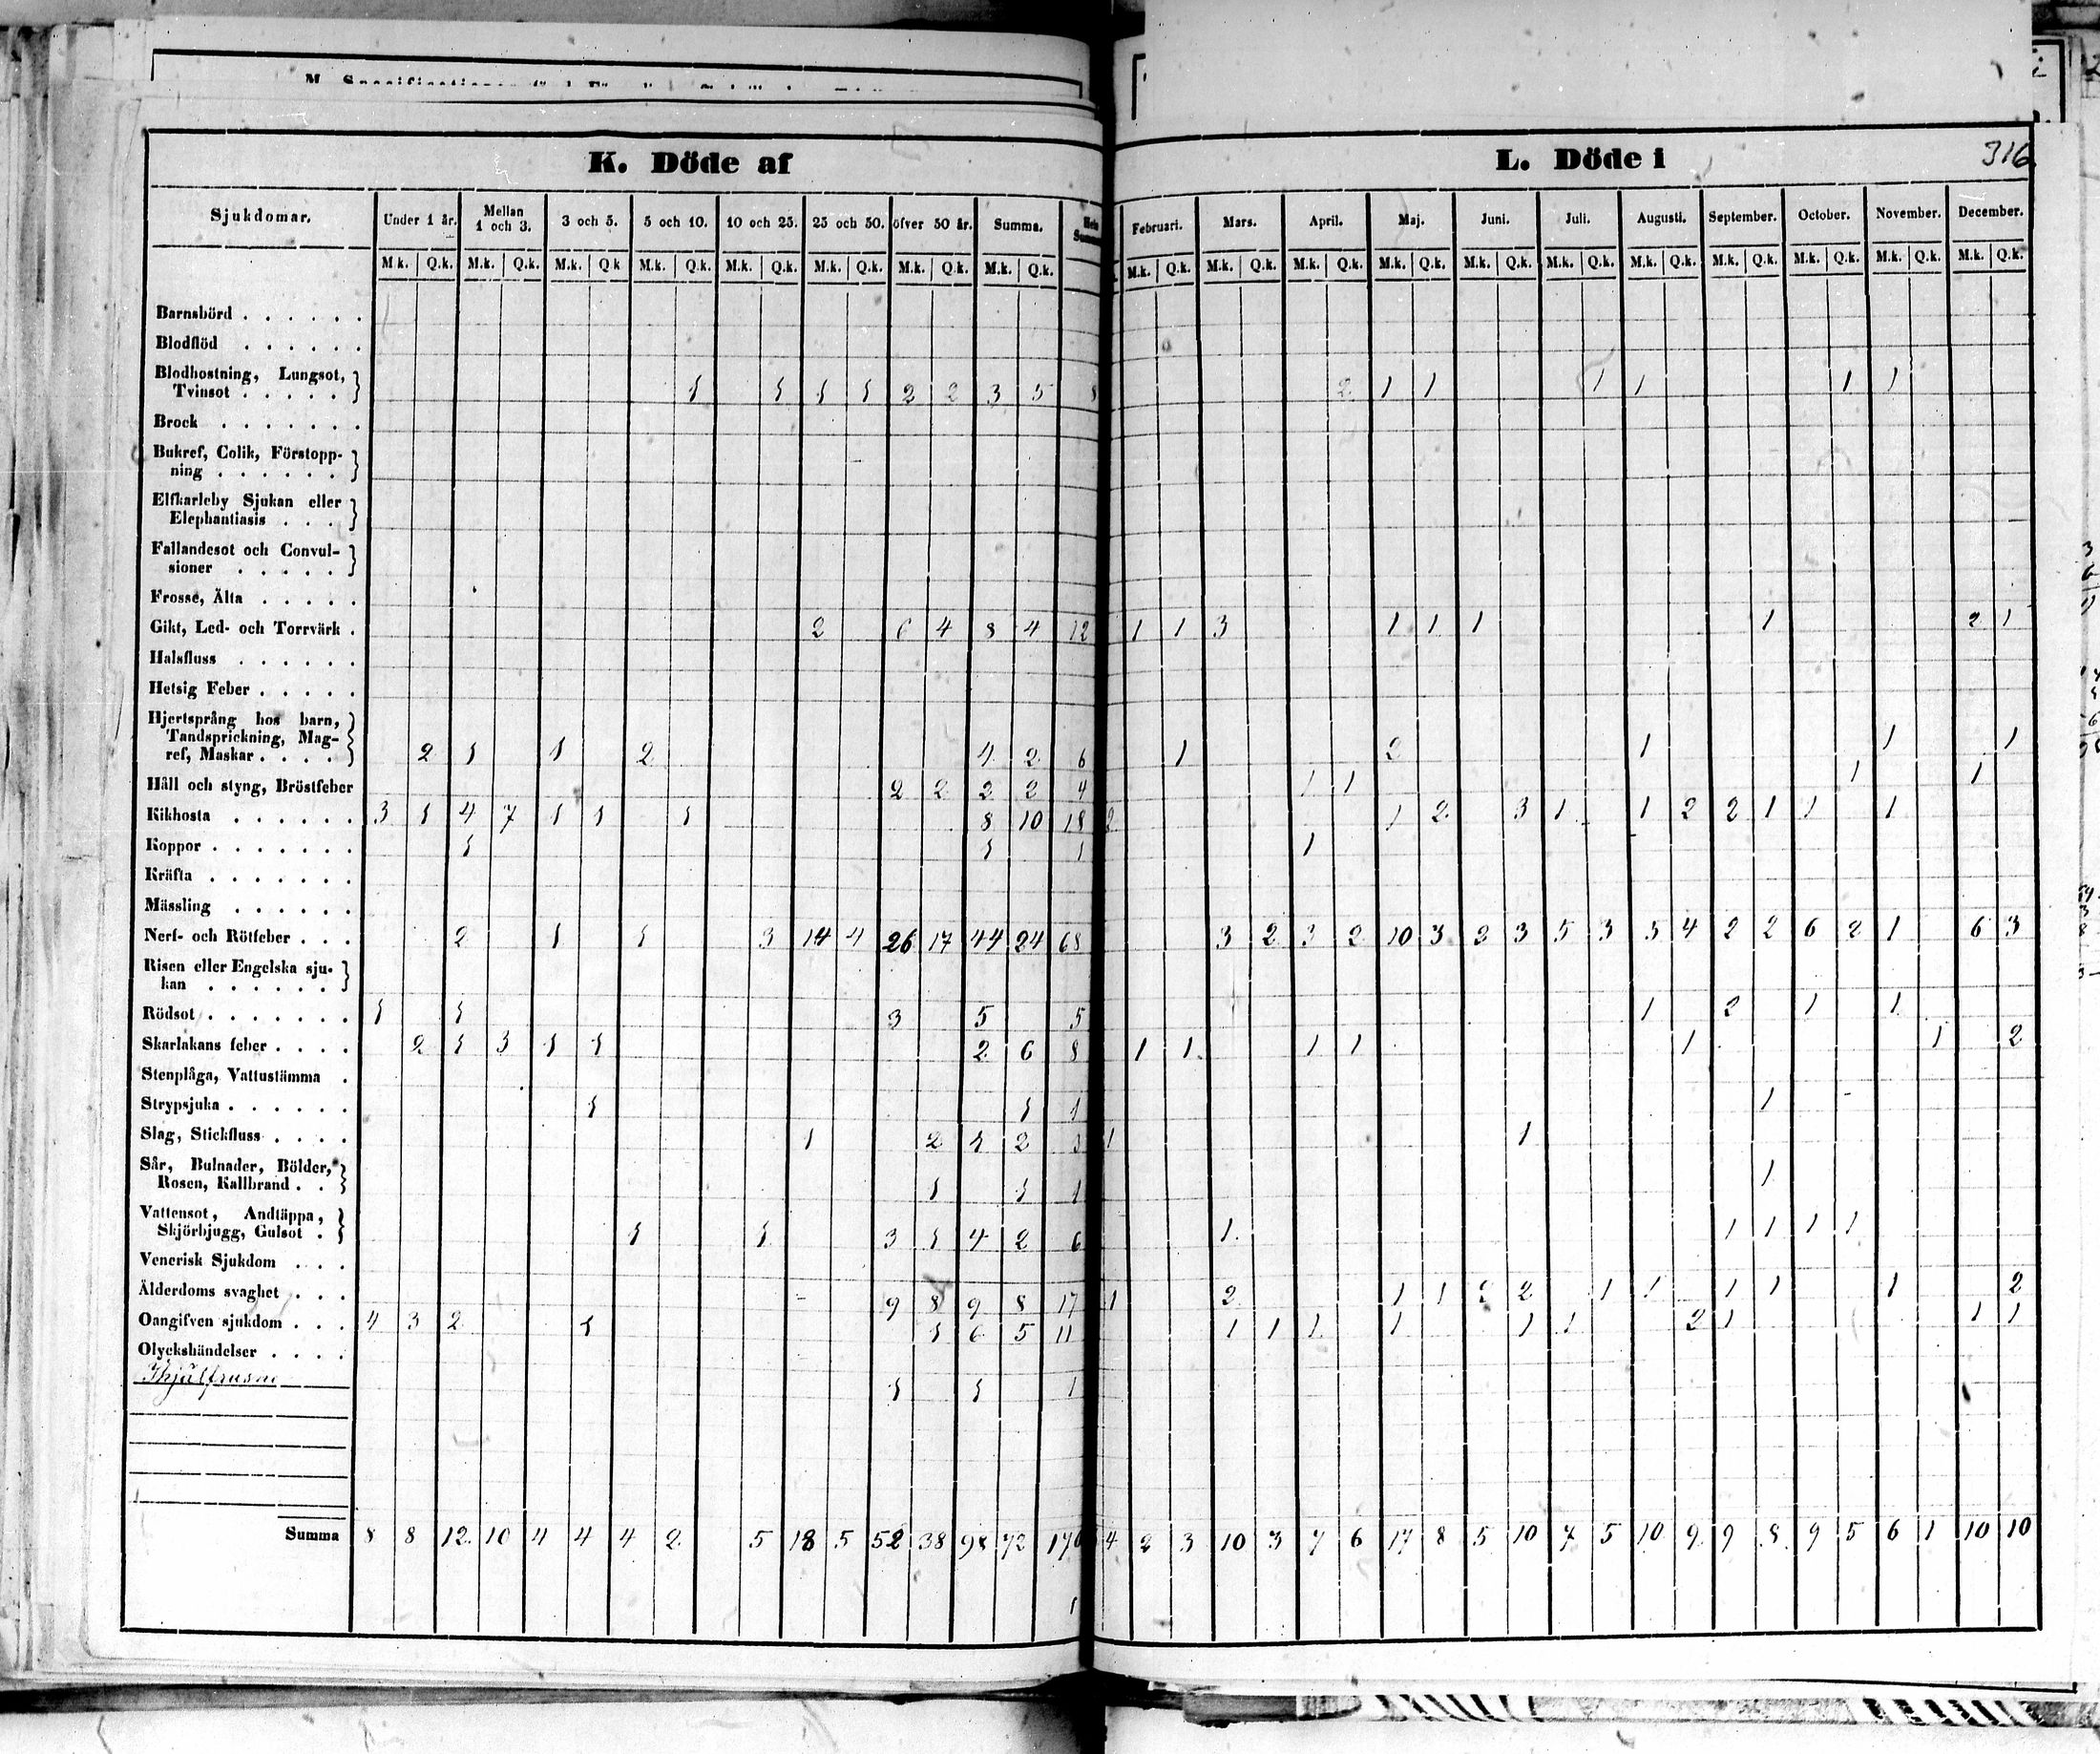 K. Döde af
L. Döde i
316
Sjukdomar. Under 1 år. Mellan 1 och 3. 3 och 5. 5 och 10. 10 och 25. 25 och 50. öfver 50 år. Summa.
Februari. Mars. April. Maj. Juni. Juli. Augusti. September. October. November. December.
M.k. Q.k. M.k. Q.k. M.k. Q.k M.k. Q.k. M.k. Q.k. M.k. Q.k. M.k. Q.k. M.k. Q.k.
M.k. Q.k. M.k. Q.k. M.k. Q.k. M.k. Q.k. M.k. Q.k. M.k. Q.k. M.k. Q.k. M.k. Q.k. M.k. Q.k. M.k. Q.k. M.k. Q.k.
Barnsbörd . . . . . .
Blodflöd . . . . . .
Blodhostning, Lungsot,
Tvinsot . . . . . 1 1 1 1 2 2 3 5 8 2 1 1 1 1 1 1
Brock . . . . . . .
Bukref, Colik, Förstopp-
ning . . . . . .
Elfkarleby Sjukan eller
Elephantiasis . . .
Fallandesot och Convul-
sioner . . . . .
Frosse, Älta . . . . .
Gikt, Led- och Torrvärk . 2 6 4 8 4 12 1 1 3 1 1 1 1 2 1
Halsfluss . . . . . .
Hetsig Feber . . . . .
Hjertsprång hos barn,
Tandsprickning, Mag-
ref, Maskar . . . . 2 1 1 2 4 2 6 1 2 1 1 1
Håll och styng, Bröstfeber 2 2 2 2 4 1 1 1 1
Kikhosta . . . . . . 3 1 4 7 1 1 1 8 10 18 2 1 2 3 1 1 2 2 1 1 1
Koppor . . . . . . . 1 1 1 1
Kräfta . . . . . . .
Mässling . . . . . .
Nerf- och Rötfeber . . . 2 1 1 3 14 4 26 17 44 24 68 3 2 3 2 10 3 2 3 5 3 5 4 2 2 6 2 1 6 3
Risen eller Engelska sju-
kan . . . . . .
Rödsot . . . . . . . 1 1 3 5 5 1 2 1 1
Skarlakans feber . . . . 2 1 3 1 1 2 6 8 1 1 1 1 1 1 2
Stenplåga, Vattustämma .
Strypsjuka . . . . . . 1 1 1 1
Slag, Stickfluss . . . . 1 2 1 2 3 1 1
Sår, Bulnader, Bölder,
Rosen, Kallbrand . . 1 1 1 1
Vattensot, Andtäppa,
Skjörbjugg, Gulsot . 1 1 3 1 4 2 6 1 1 1 1 1
Venerisk Sjukdom . . .
Ålderdoms svaghet . . . 9 8 9 8 17 1 2 1 1 2 2 1 1 1 1 1 2
Oangifven sjukdom . . . 4 3 2 1 1 6 5 11 1 1 1 1 1 1 2 1 1 1
Olyckshändelser . . . .
Ihjälfrusne 1 1 1
Summa 8 8 12 10 4 4 4 2 5 18 5 52 38 98 72 170 4 2 3 10 3 7 6 17 8 5 10 7 5 10 9 9 8 9 5 6 1 10 10